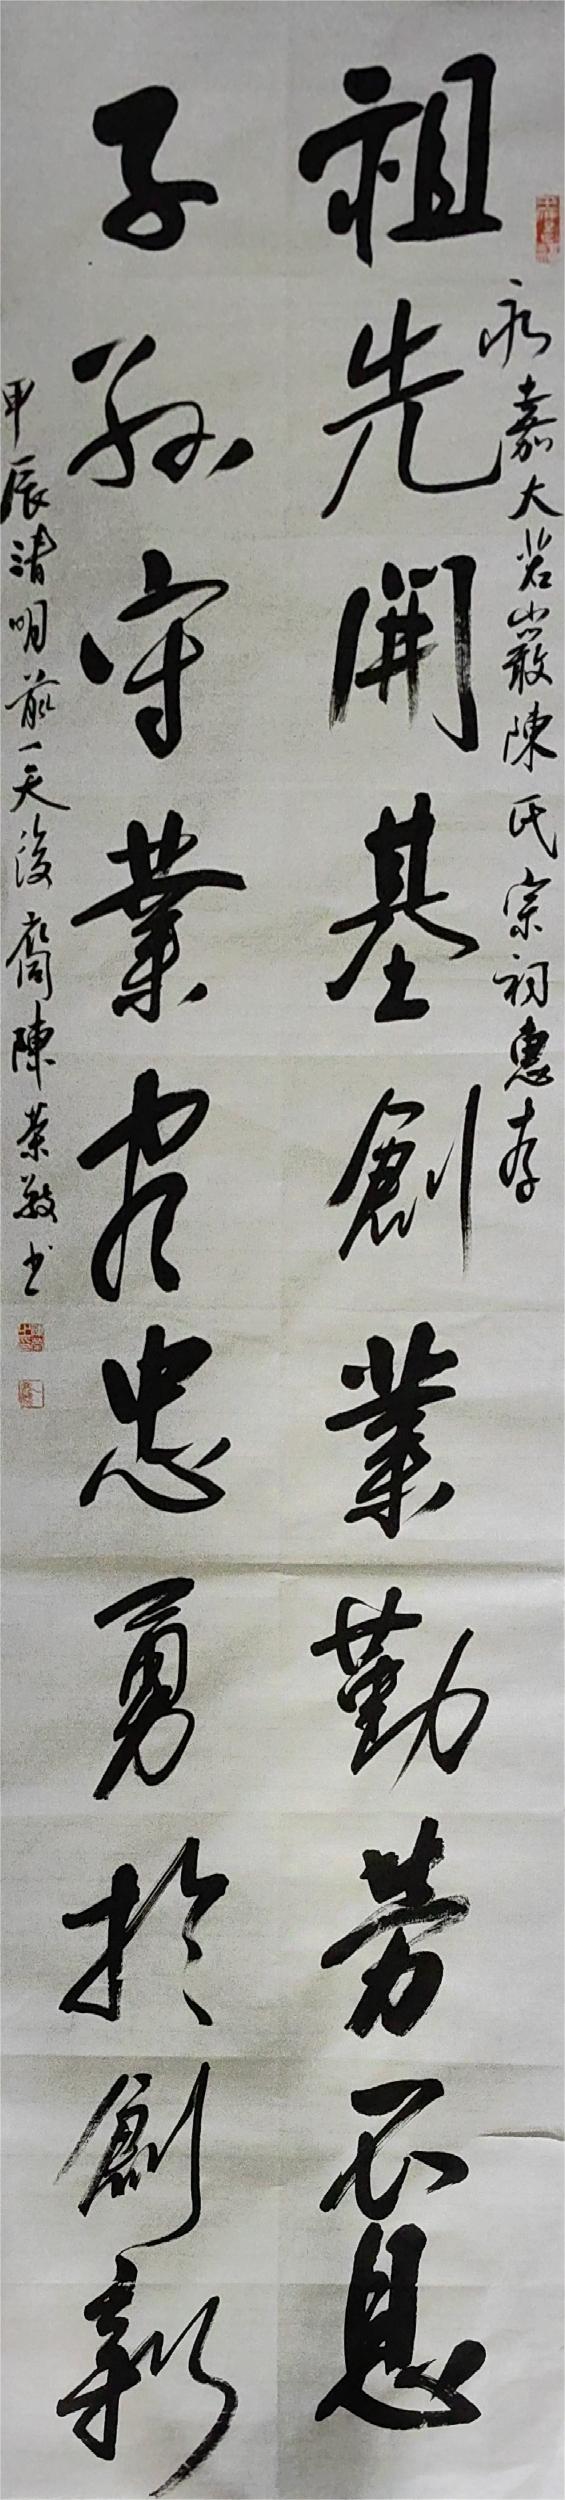 永嘉大若巖陳氏宗祠惠存
祖先開基創業勤勞不息
子孫守業盡忠勇於創新
甲辰清明前一天後裔陳榮敏書